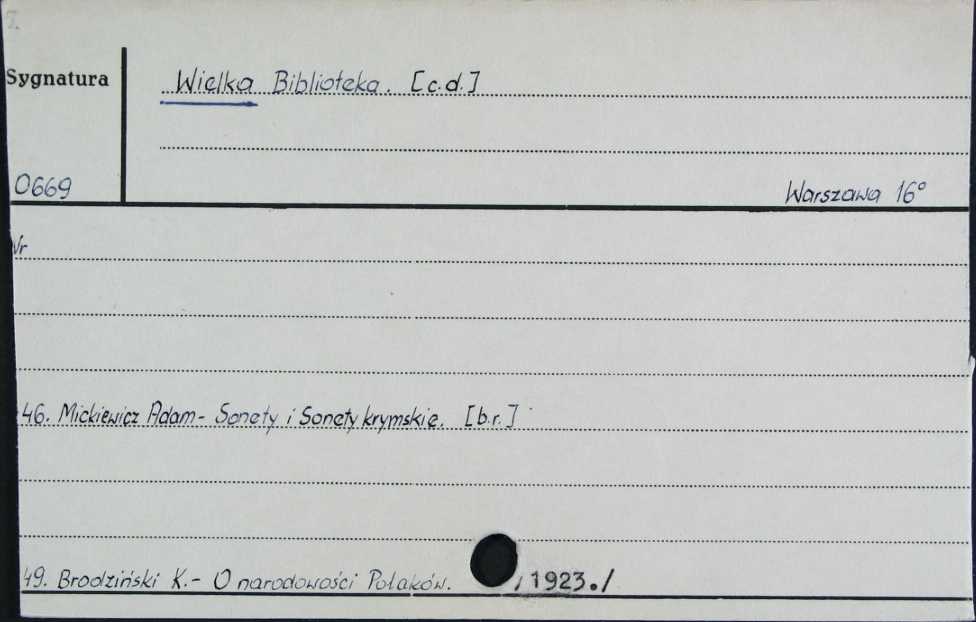 Sygnatura
Wielka Biblioteka. [c.d.]
0669
Warszawa 16°
Nr
46. Mickiewicz Adam - Sonety i Sonety krymskie. [b.r.]
49. Brodziński K. - O narodowości Polaków. /1923./